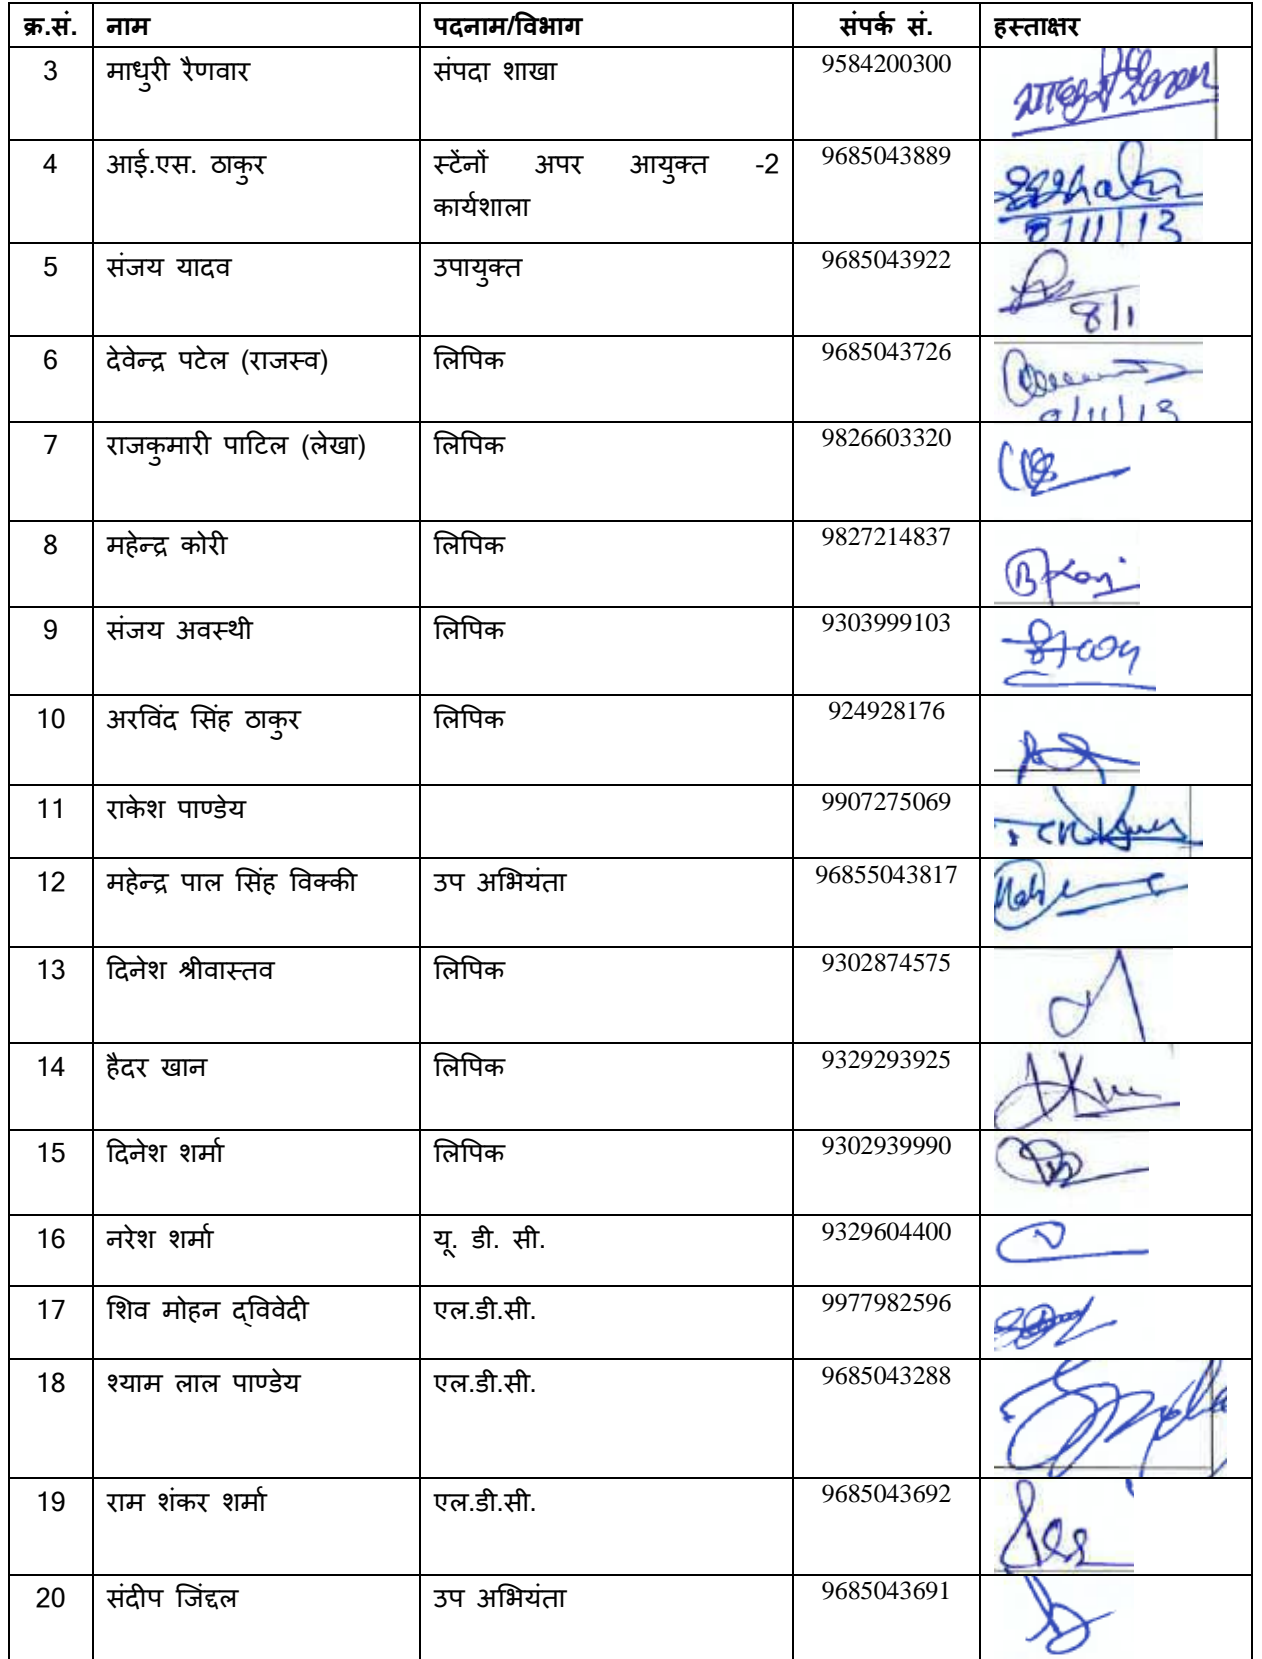 क्र.सं. नाम पदनाम/विभाग संपर्क सं. हस्ताक्षर
3 माधुरी रैणवार संपदा शाखा 9584200300
4 आई.एस. ठाकुर स्टेंनों अपर आयुक्त -2 9685043889
कार्यशाला
8/11/13
5 संजय यादव उपायुक्त 9685043922
8/1
6 देवेन्द्र पटेल (राजस्व) लिपिक 9685043726
7 राजकुमारी पाटिल (लेखा) लिपिक 9826603320
8 महेन्द्र कोरी लिपिक 9827214837
9 संजय अवस्थी लिपिक 9303999103
10 अरविंद सिंह ठाकुर लिपिक 924928176
11 राकेश पाण्डेय 9907275069
12 महेन्द्र पाल सिंह विक्की उप अभियंता 96855043817
13 दिनेश श्रीवास्तव लिपिक 9302874575
14 हैदर खान लिपिक 9329293925
15 दिनेश शर्मा लिपिक 9302939990
16 नरेश शर्मा यू. डी. सी. 9329604400
17 शिव मोहन द्विवेदी एल.डी.सी. 9977982596
18 श्याम लाल पाण्डेय एल.डी.सी. 9685043288
19 राम शंकर शर्मा एल.डी.सी. 9685043692
20 संदीप जिंद्दल उप अभियंता 9685043691